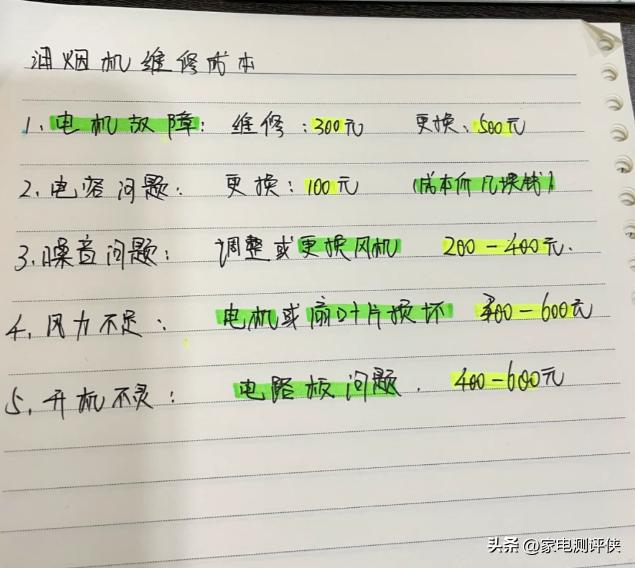 油烟机维修成本
1、电机故障：维修：300元 更换：500元
2、电容问题：更换：100元 （成本价几块钱）
3、噪音问题：调整或更换风机 200-400元.
4、风力不足：电机或扇叶片损坏 400-600元
5、开机不灵：电路板问题. 400-600元
头条 @家电测评侠